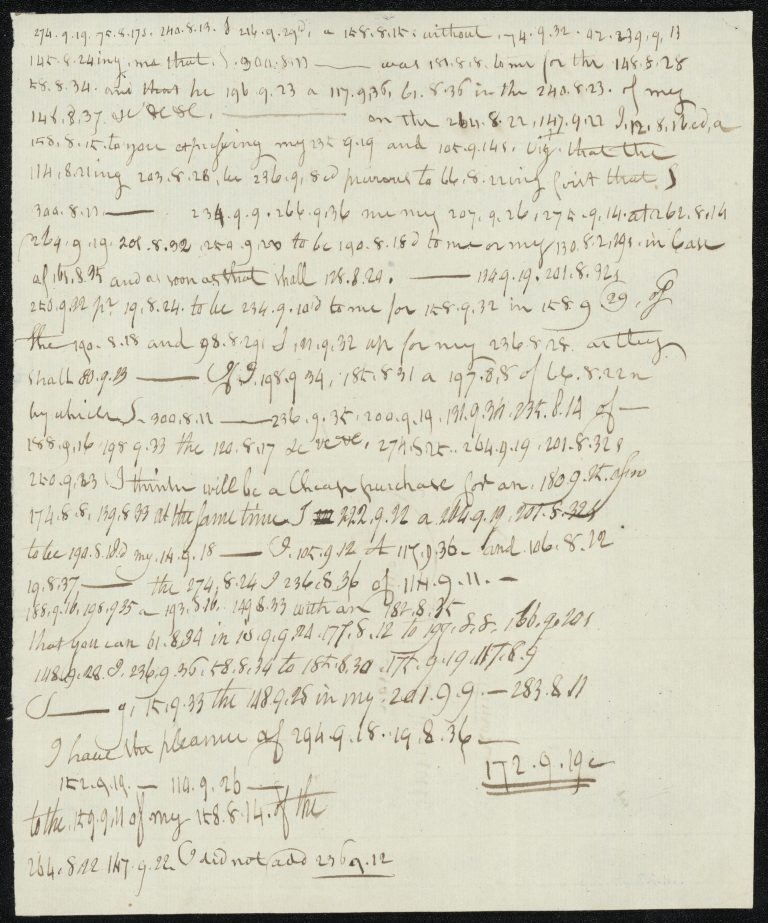 274.9.19. 75.8.17s. 240.8.13. I 216.9.29d, a 158.8.15. without 174.9.32. 92. 239.9.13
145.8.24ing, me that, S. 300.8.11 —— was 181.8.8. to me for the 148.8.28
58.8.34. and that he 196.9.23 a 117.9.36, 61.8.36 in the 240.8.23. of my
146.8.37. &c &c &c. —— on the 264.8.22, 147.9.22 I, 12.8.16ed, a
158.8.15. to you expressing my 235.9.19 and 105.9.14s. that the
114.8.21ing 203.8.28, be 236.9.8d purvous to 66.8.22ing first that S
300.8.11. —— 234.9.9. 266.9.36 me my 207.9.26, 275.9.14. at 262.8.14
264.9.19. 201.8.32, 250.9.20 to be 190.8.18d to me or my 130.8.2,29s. in Case
of 161.8.35 and as soon as that shall 128.8.20. —— 114.9.19. 201.8.32s
250.9.22 pr 19.8.24. to be 234.9.10'd to me for 158.9.32 in 158.9 29, of
the 190.8.18 and 98.8.29, I, 111.9.32 up for my 236.8.28. as they
shall 80.9.13 —— If I. 198.9.34, 185.8.31 a 197.8.8 of 66.8.22n
by which S. 300.8.11 —— 236.9.35, 200.9.19, 131.9.34. 235.8.14 of —
188.9.16. 198.9.33 the 120.8.17 &c &c &c. 274.8.25.. 264.9.19. 201.8.32s
250.9.23 I think will be a Cheap purchase for an, 180.9.25.
174.8.8, 139.8.33 at the same time I 222.9.22 a 264.9.19, 201.8.32s
to be 190.8.18.d my. 14.9.18 —— I. 105.9.12 117.9.36 — and. 106.8.12
19.8.37 —— the 274.8.24 I 236.8.36 of 114.9.11. —
188.9.16. 198.9.35 a 193.8.16. 149.8.33 with an 182.8.35
that you can 61.8.34 in 10.9.9.24. 177.8.12 to 197.8.8. 166.9.20s
148.9.28. I. 236.9.36, 58.8.34 to 185.8.30, 175.9.19 117.8.9
S —— g, 15.9.33 the 148.9.28 in my. 201.9.9. — 283.8.11
I have the pleasure of 294.9.18. 19.8.36 —
152.9.19. — 114.9.26 — 172.9.19c
to the 159.9.11 of my 158.8.14. of the
264.8.22 147.9.22. I did not add 236.9.12